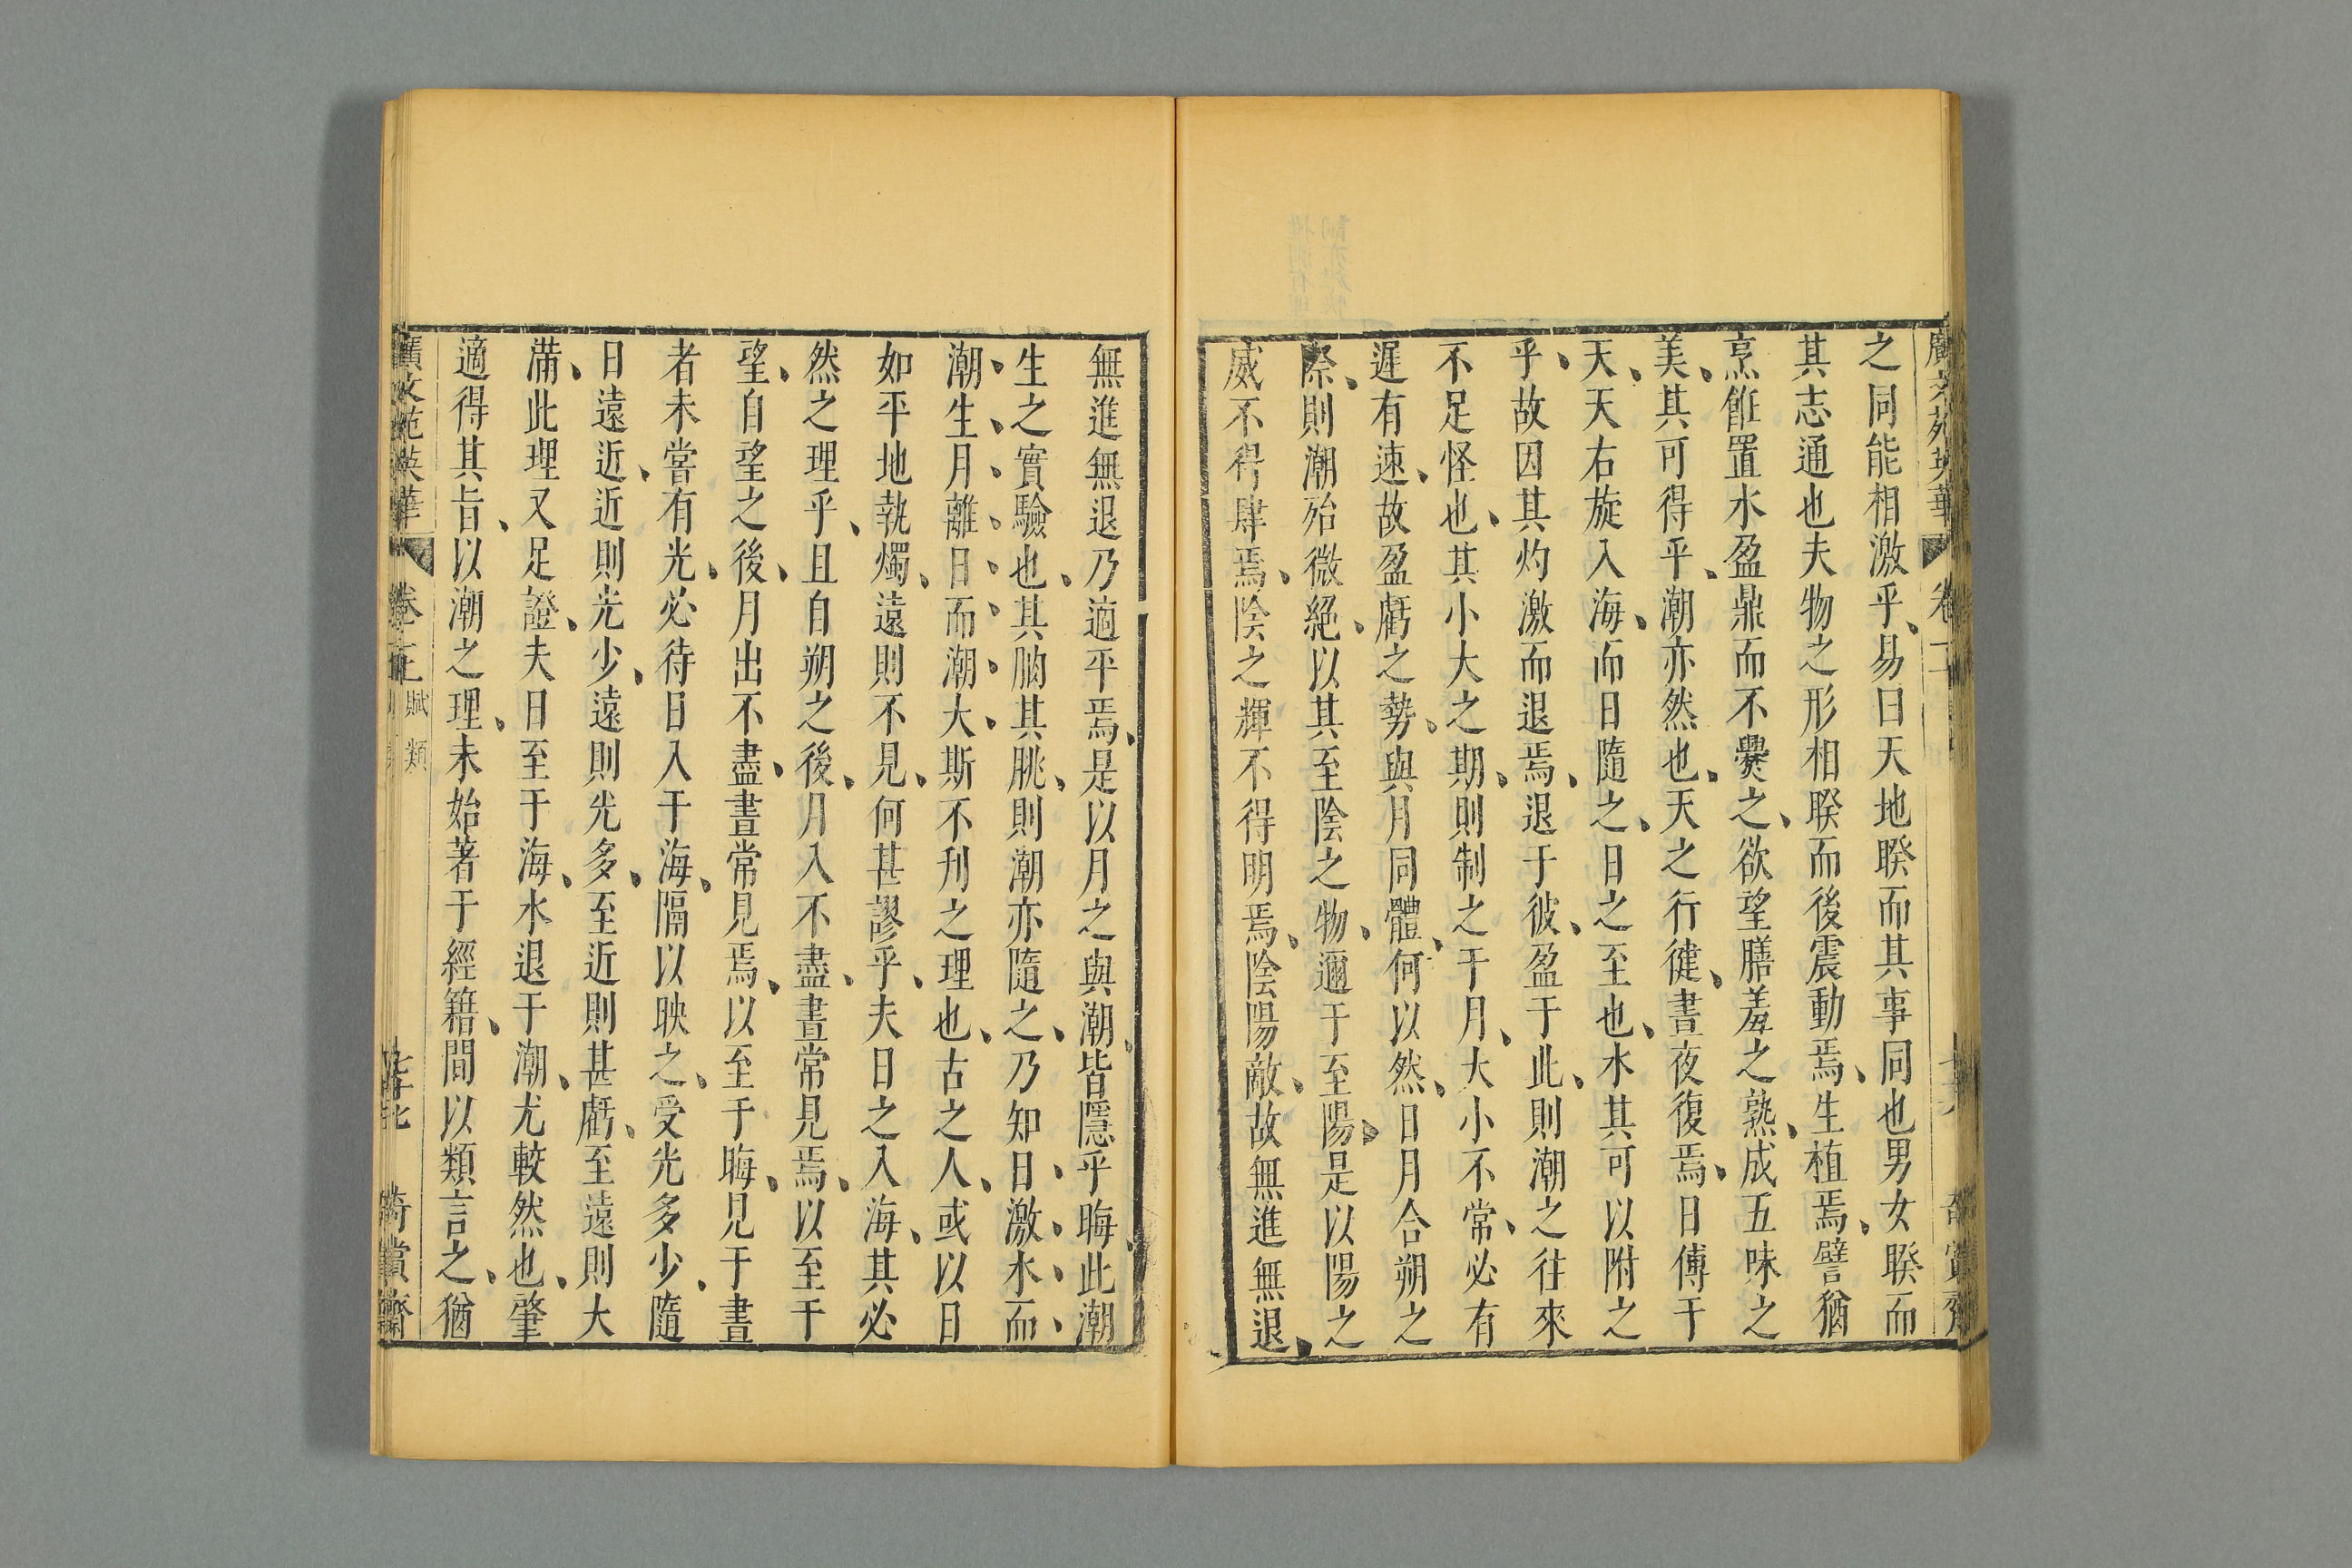 之同能相激乎易曰天地睽而其事同也男女睽而
其志通也夫物之形相睽而後震動焉生植焉譬猶
烹飪置水盈鼎而不爨之欲望膳羞之熟成五味之
美其可得乎潮亦然也天之行健晝夜復焉日傅于
天天右旋入海而日隨之日之至也水其可以附之
乎故因其灼激而退焉退于彼盈于此則潮之往來
不足怪也其小大之期則制之于月大小不常必有
遲有速故盈虧之勢與月同體何以然日月合朔之
際則潮殆微絕以其至陰之物邇于至陽是以陽之
威不得肆焉陰之輝不得明焉陰陽敵故無進無退
無進無退乃適平焉是以月之與潮皆隱乎晦此潮
生之實驗也其朒其朓則潮亦隨之乃知日激水而
潮生月離日而潮大斯不刊之理也古之人或以日
如平地執燭遠則不見何甚謬乎夫日之入海其必
然之理乎且自朔之後月入不盡晝常見焉以至于
望自望之後月出不盡晝常見焉以至于晦見于晝
者未嘗有光必待日入于海隔以映之受光多少隨
日遠近近則光少遠則光多至近則甚虧至遠則大
滿此理又足證夫日至于海水退于潮尤較然也肇
適得其旨以潮之理未始著于經籍間以類言之猶
廣文苑英華 卷 賦類